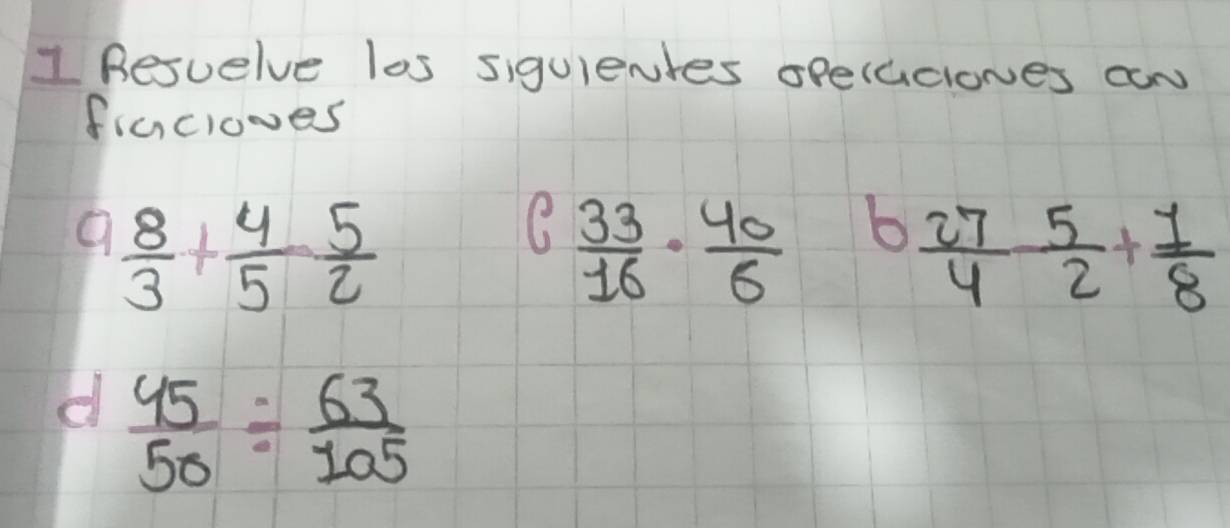 1 Resuelve los siguientes operaciones con
fracciones
a 8/3 + 4/5 - 5/2 c 33/16 · 40/6 b 27/4 - 5/2 + 1/8
d 45/50 ÷ 63/105